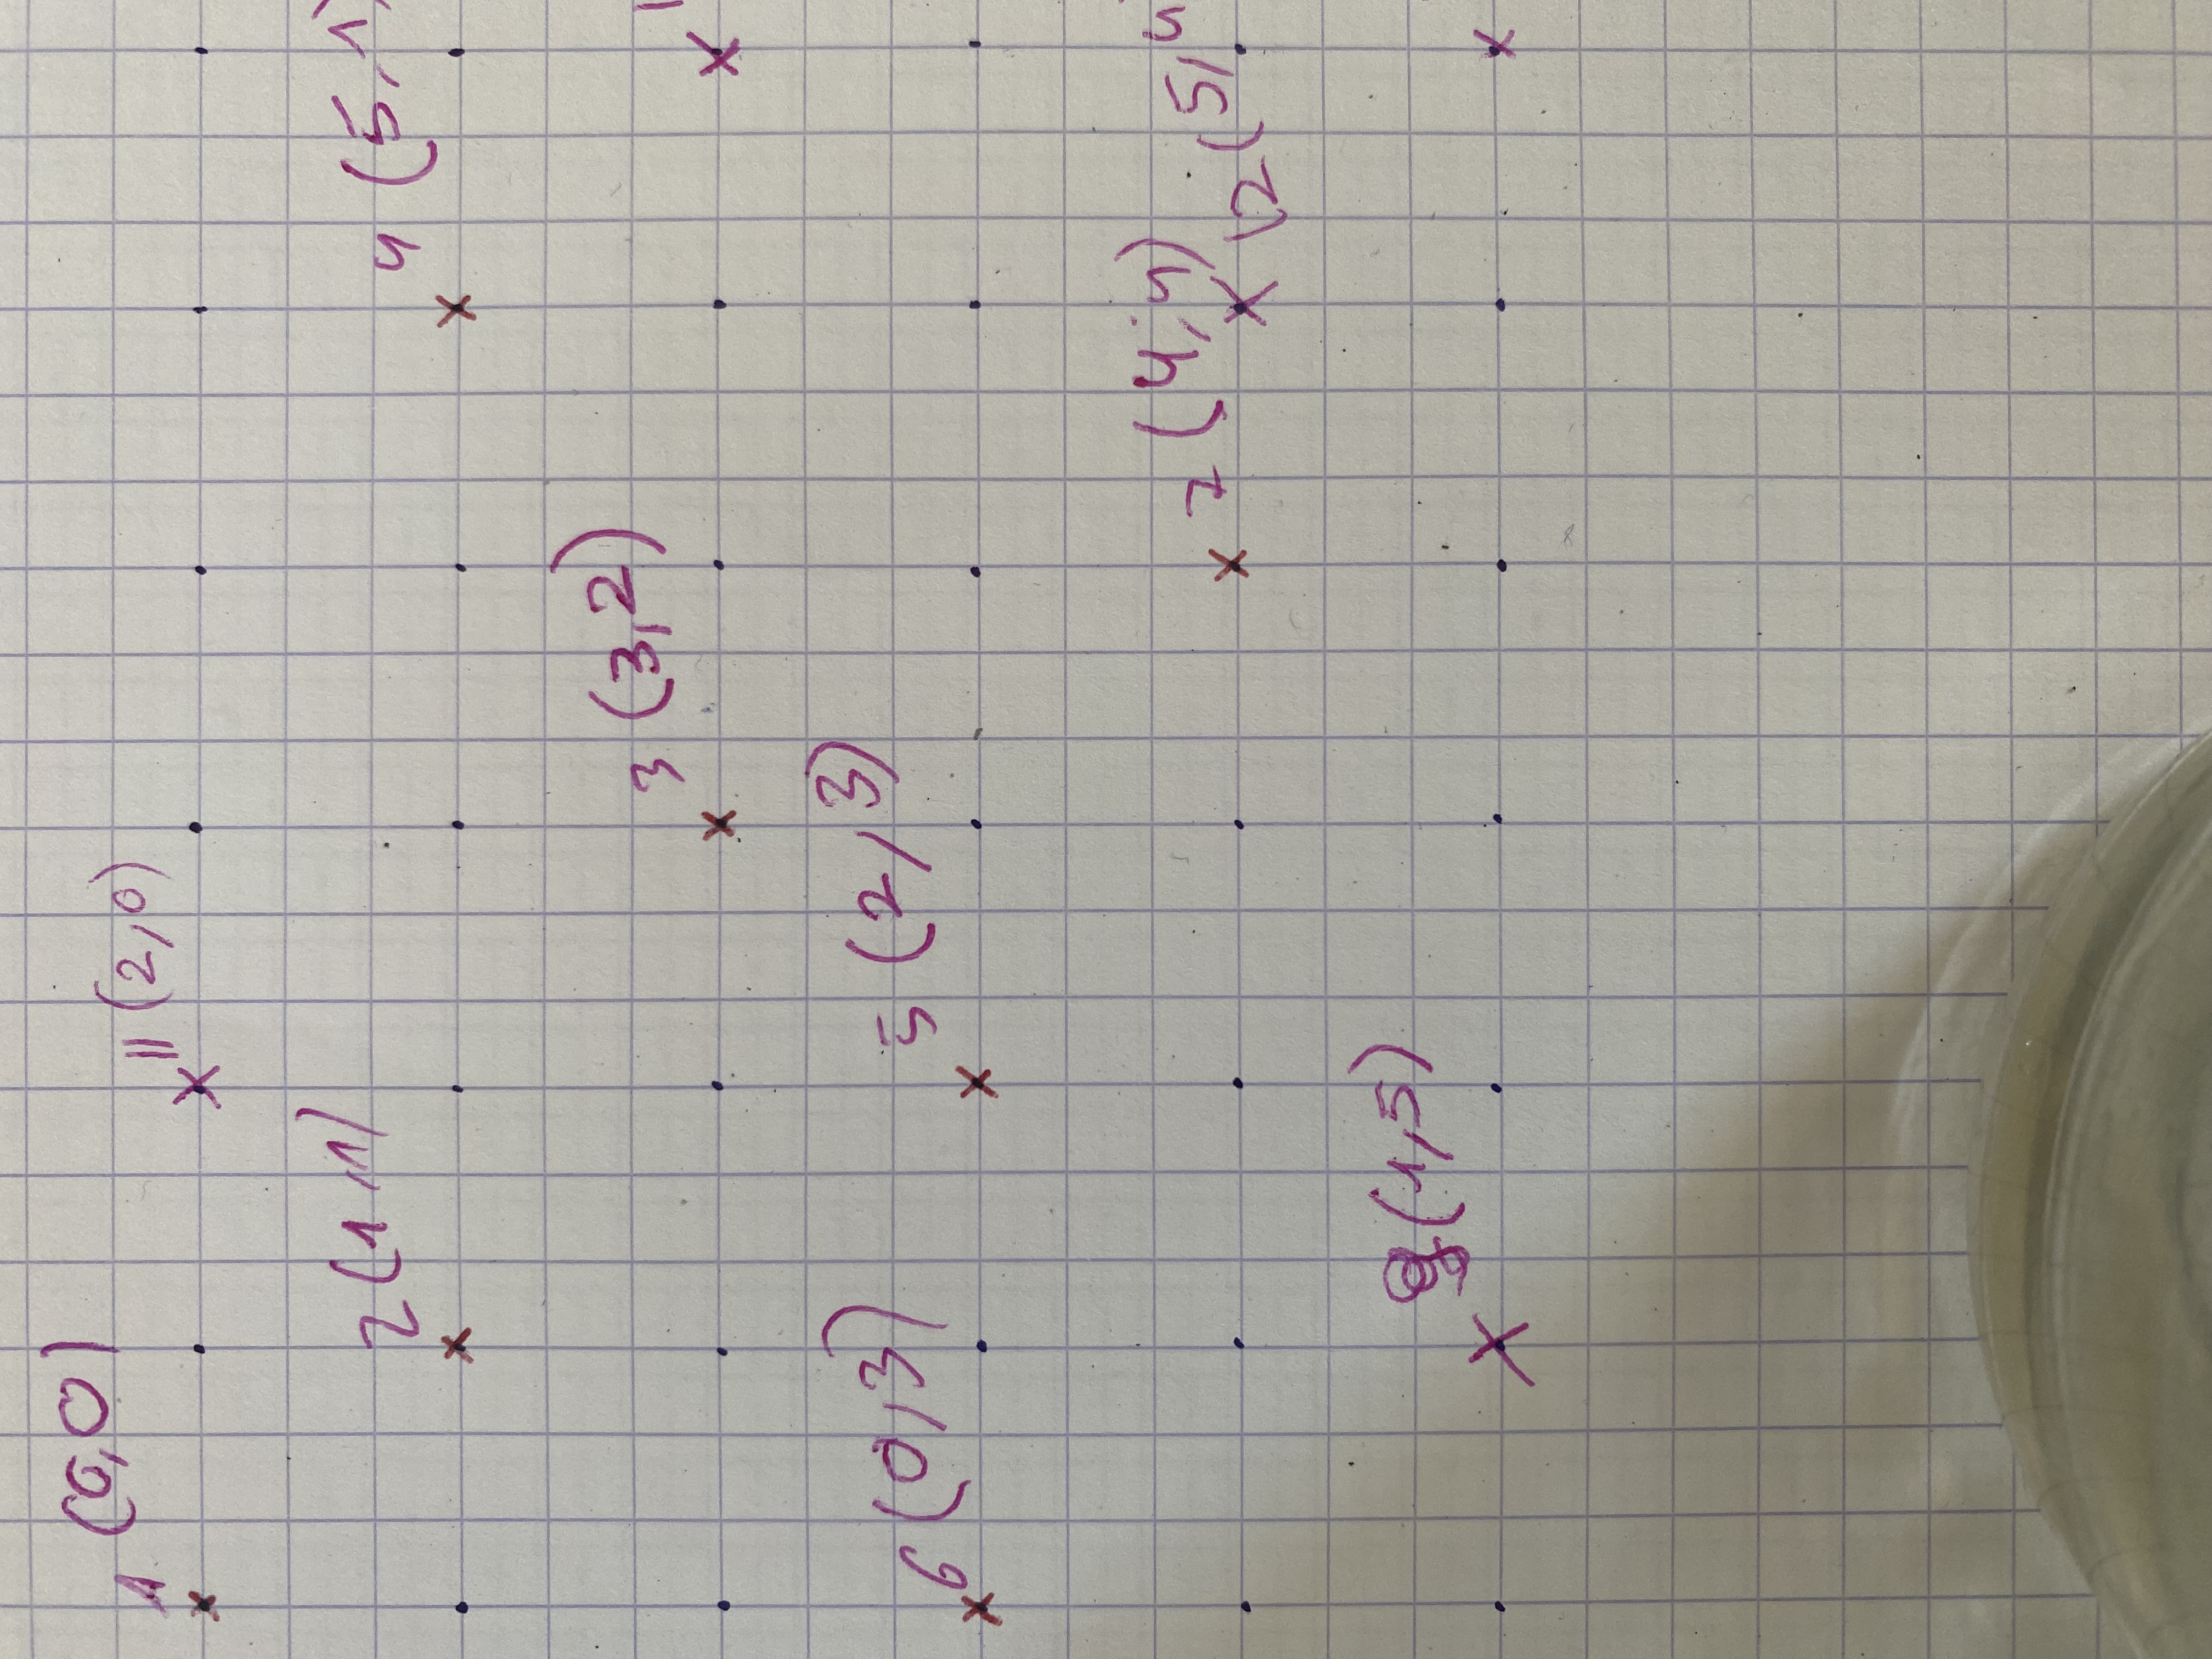 1 (0,0)
11 (2,0)
2 (1,1)
4 (5,1)
3 (3,2)
6 (0,3)
5 (2,3)
7 (4,4)
12 (5,4
(1,5)